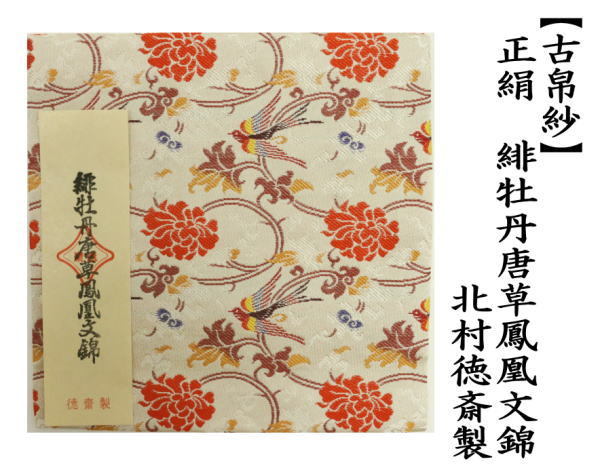 【古帛紗】
正絹　緋牡丹唐草鳳凰文錦
北村徳斎製
緋牡丹唐草鳳凰文錦
徳齋製